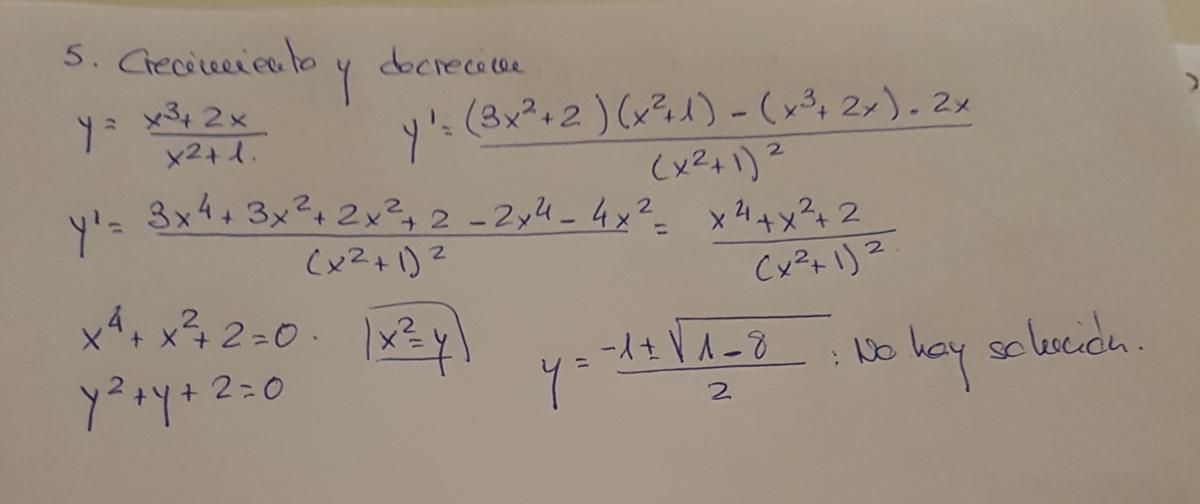 5. Crecimiento y decrecim
y = (x³+2x)/(x²+1). y' = ((3x²+2)(x²+1) - (x³+2x)·2x)/(x²+1)²
y' = (3x⁴+3x²+2x²+2-2x⁴-4x²)/(x²+1)² = (x⁴+x²+2)/(x²+1)²
x⁴+x²+2=0. |x²=y| y = (-1±√(1-8))/2 : No hay solución.
y²+y+2=0